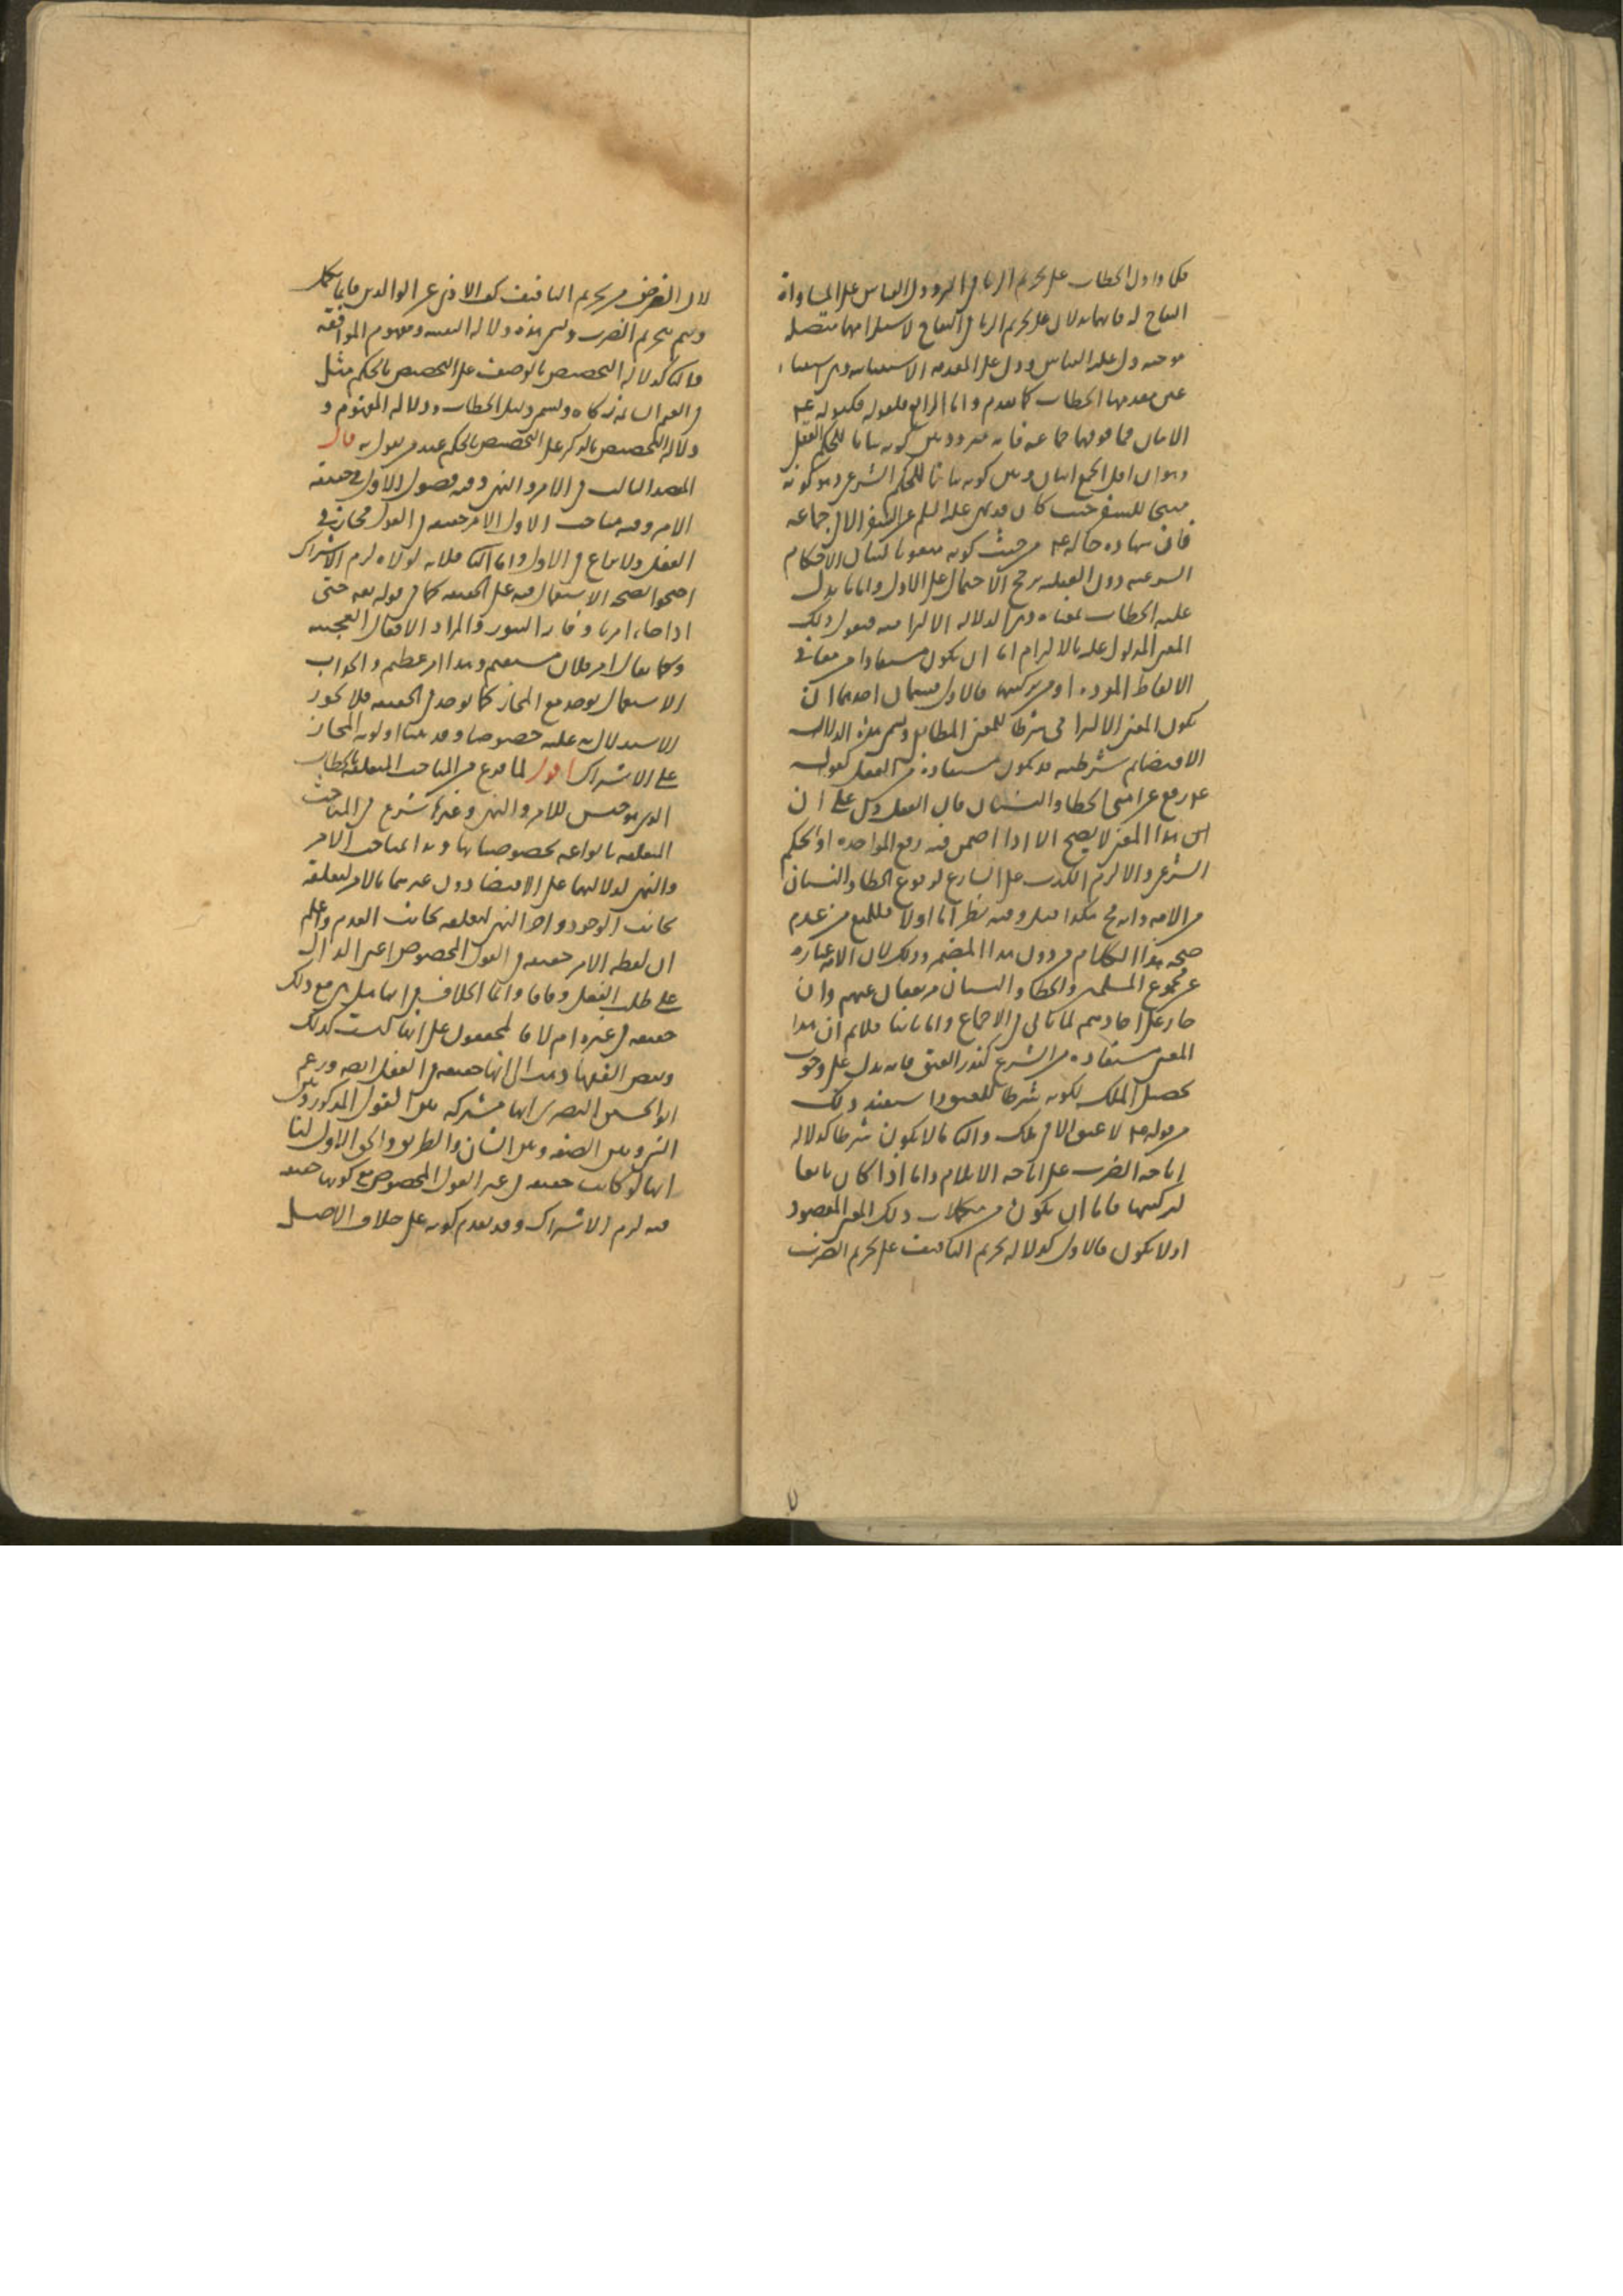 فكما اذا دل الخطاب على تحريم الربا في البر ودل القياس على المساواة
التفاح له فانهما يدلان على تحريم الربا في التفاح لاستلزامهما متصلة
موجبة دل عليه القياس ودل على المقدمة الاستثنائية وهي استثناء
عين مقدمها الخطاب كما تقدم واما الرابع فلقوله فكقوله عم
الاثنان فما فوقهما جماعة فانه متردد بين كونه بيانا للحكم العقلي
وهو ان اقل الجمع اثنان وبين كونه بيانا للحكم الشرعي وهو كونه
مبيحا للسفر حيث كان قد نهى عليه السلم عن السفر الا في جماعة
فان شهادة حاله عم من حيث كونه مبعوثا لبيان الاحكام
الشرعية دون العقلية يرجح الاحتمال على الاول واما ما يدل
عليه الخطاب بمعناه وهي الدلالة الالتزامية فنقول ذلك
المعنى المدلول عليه بالالتزام اما ان يكون مستفادا من معاني
الالفاظ المفردة او من تركيبها فالاول قسمان احدهما ان
يكون المعنى الالتزامي شرطا للمعنى المطابقي وتسمى هذه الدلالة
الاقتضا ثم شرطيته قد يكون مستفادة من العقل كقوله
عم رفع عن امتي الخطا والنسيان فان العقل دل على ان
هذا المعنى لا يصح الا اذا اضمر فيه رفع المؤاخذة او الحكم
الشرعي والا لزم الكذب على الشارع لوقوع الخطا والنسيان
من الامة وانه مح هكذا قيل وفيه نظر اما اولا فللمنع من عدم
صحة هذا الكلام من دون هذا المضمر وذلك لان الامة عبارة
عن مجموع المسلمين والخطا والنسيان مرتفعان عنهم وان
جاز على احادهم لما ياتي في الاجماع واما ثانيا فلانم ان هذا
المعنى مستفاده من الشرع كنذر العتق فانه يدل على وجوب
تحصيل الملك لكونه شرطا للعتق استفيد ذلك
من قوله عم لا عتق الا في ملك والثاني ما لا يكون شرطا كدلالة
اباحة الضرب على اباحة الايلام واما اذا كان تابعا
لتركيبها فاما ان يكون من مكملات ذلك المعنى المقصود
او لا يكون فالاول كدلالة تحريم التافيف على تحريم الضرب
لان الغرض من تحريم التافيف كف الاذى عن الوالدين فانما يكمل
ويتم بتحريم الضرب وتسمى هذه دلالة التنبيه ومفهوم الموافقة
والثاني كدلالة التخصيص بالوصف على التخصيص بالحكم مثل
في الغنم السائمة زكاه ويسمى دليل الخطاب ودلالة المفهوم و
دلالة التخصيص بالذكر على التخصيص بالحكم عند من يقول به قال
المقصد الثالث في الامر والنهي وفيه فصول الاول في حقيقة
الامر وفيه مباحث الاول الامر حقيقة في القول مجاز في
الفعل ولا نزاع في الاول واما الثاني فلانه لولاه لزم الاشتراك
احتجوا بصحة الاستعمال فيه على الحقيقة كما في قوله تعه حتى
اذا جاء امرنا وفار التنور والمراد الافعال العجيبة
وكما يقال امر فلان مستقيم وهذا امر عظيم والجواب
الاستعمال يوجد مع المجاز كما يوجد في الحقيقة فلا يجوز
الاستدلال به عليه خصوصا وقد بينا اولوية المجاز
على الاشتراك اقول لما فرغ من المباحث المتعلقة بالخطاب
الذي هو جنس للامر والنهي وغيرهما شرع في المباحث
المتعلقة بانواعه بخصوصياتها وبدا بمباحث الامر
والنهي لدلالتهما على الاقتضا دون غيرهما بالامر لتعلقه
بجانب الوجود واخر النهي لتعلقه بجانب العدم واعلم
ان لفظة الامر حقيقة في القول المخصوص اعني الدال
على طلب الفعل وفاقا وانما الخلاف في انها هل هي مع ذلك
حقيقة في غيره ام لا فالمحققون على انها ليست كذلك
وبعض الفقها ذهب الى انها حقيقة في الفعل ايضه وزعم
ابو الحسين البصري انها مشتركة بين القول المذكور وبين
الشي وبين الصفة وبين الشان والطريق والحق الاول لنا
انها لو كانت حقيقة في غير القول المخصوص مع كونها حقيقة
فيه لزم الاشتراك وقد تقدم كونه على خلاف الاصل